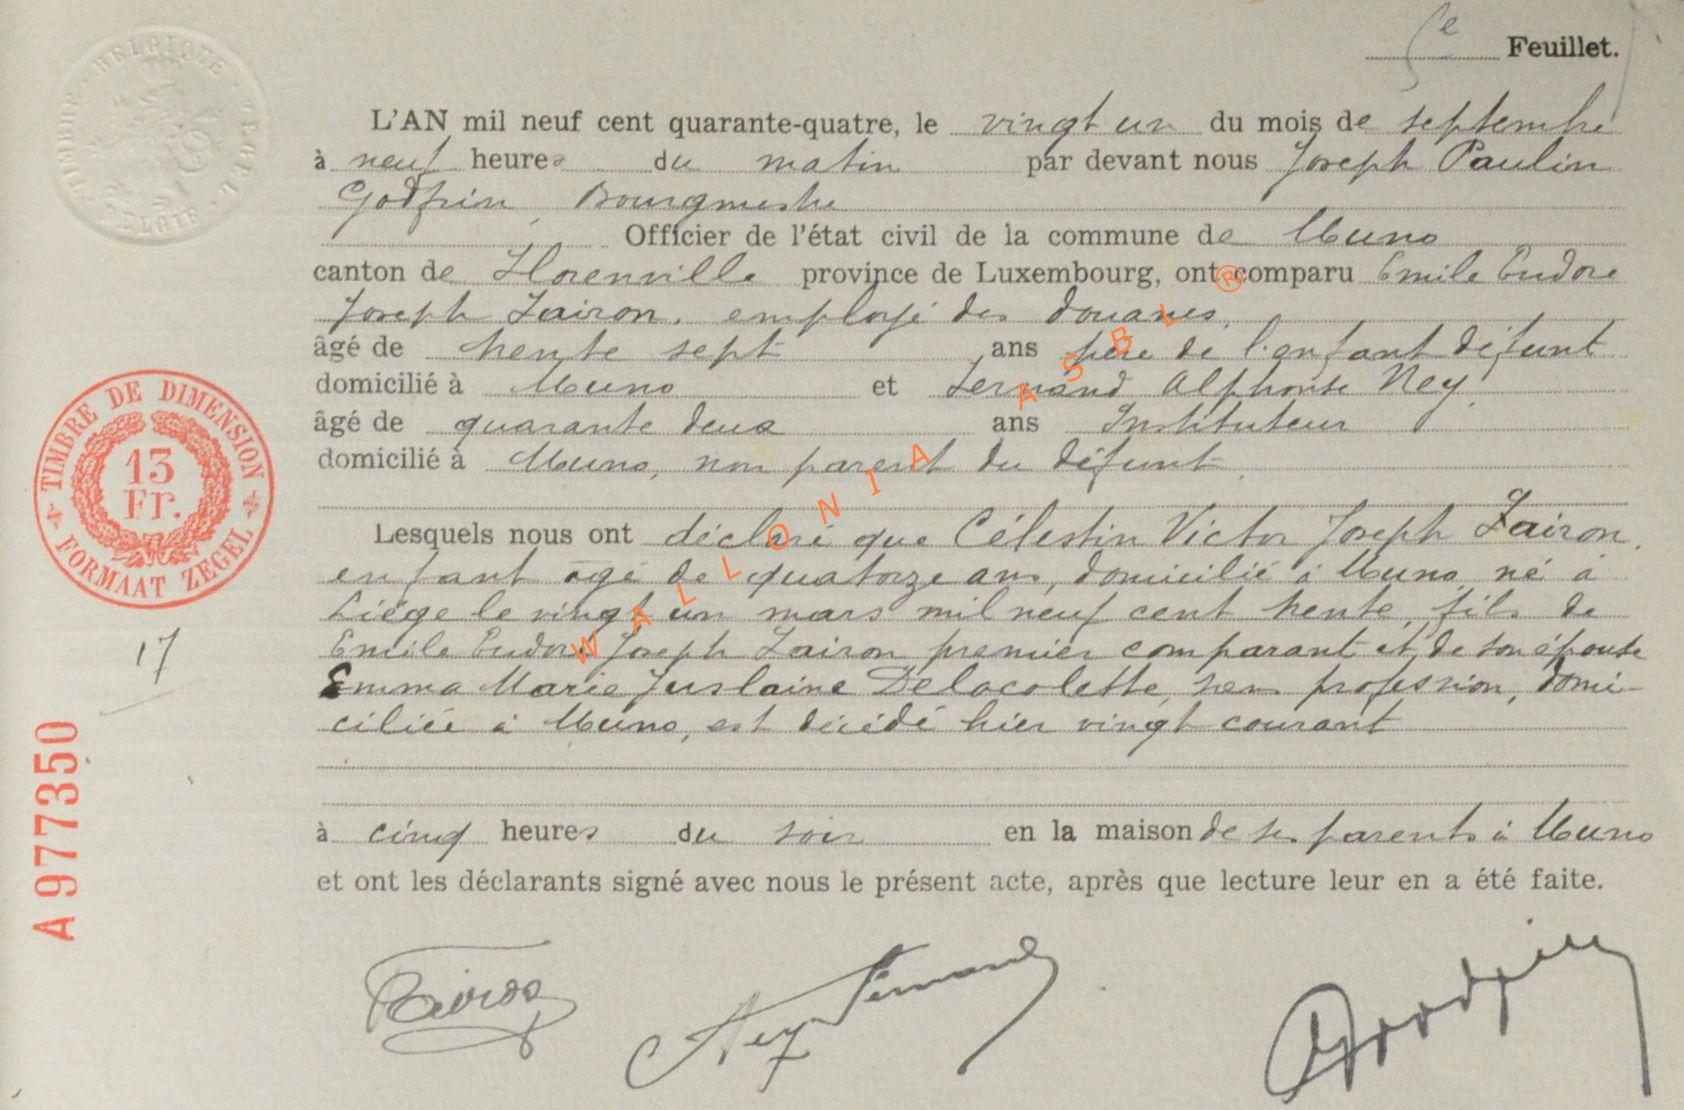 5e Feuillet.
L'AN mil neuf cent quarante-quatre, le vingt un du mois de septembre
à neuf heures du matin par devant nous Joseph Paulin
Godfrin, Bourgmestre
Officier de l'état civil de la commune de Muno
canton de Florenville province de Luxembourg, ont comparu Emile Eudore
Joseph Zairon, employé des douanes,
âgé de trente sept ans père de l'enfant défunt
domicilié à Muno et Fernand Alphonse Ney,
âgé de quarante deux ans Instituteur
domicilié à Muno, non parent du défunt.
Lesquels nous ont déclaré que Célestin Victor Joseph Zairon,
enfant âgé de quatorze ans, domicilié à Muno, né à
Liége le vingt un mars mil neuf cent trente, fils de
Emile Eudore Joseph Zairon premier comparant et de son épouse
Emma Marie Delacolette, sans profession, domi-
ciliée à Muno, est décédé hier vingt courant
à cinq heures du soir en la maison de ses parents à Muno
et ont les déclarants signé avec nous le présent acte, après que lecture leur en a été faite.
Ney Fernand
Godfrin
TIMBRE · BELGIQUE · ZEGEL · BELGIE
TIMBRE DE DIMENSION
13
Fr.
FORMAAT ZEGEL
17
A977350
WALLONIA ASBL ®